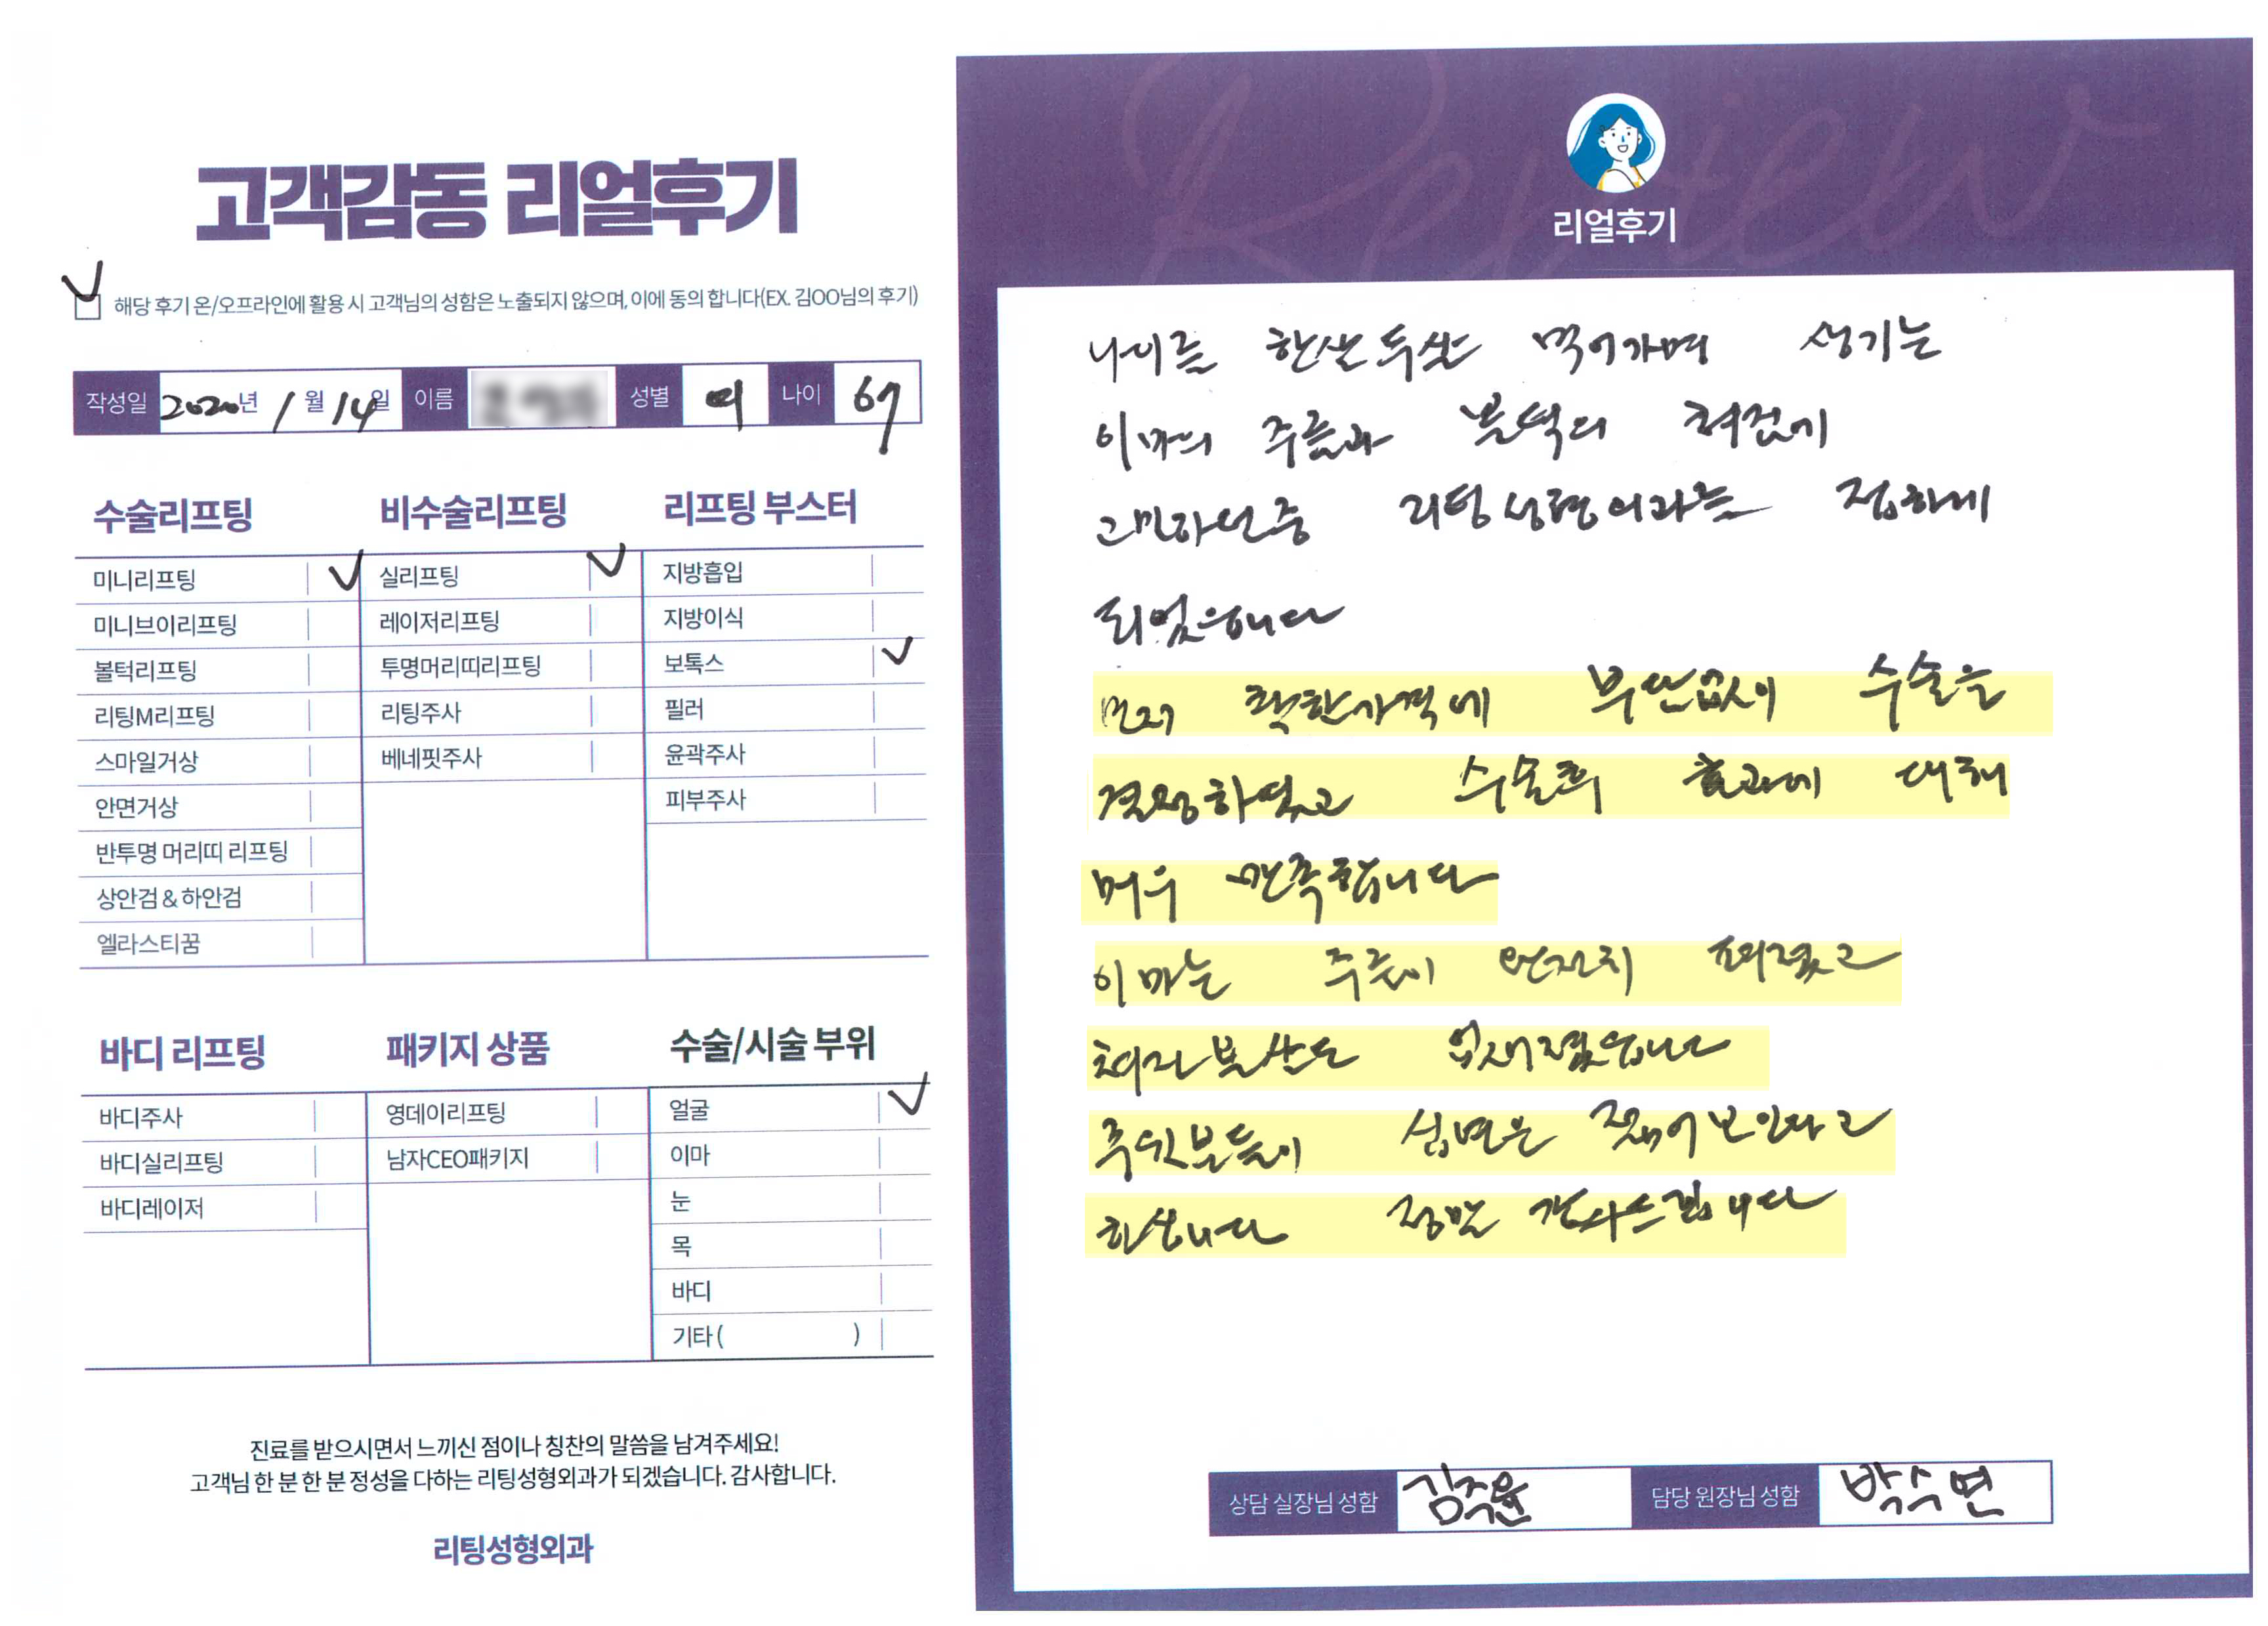 고객감동 리얼후기
해당 후기 온/오프라인에 활용 시 고객님의 성함은 노출되지 않으며, 이에 동의 합니다(EX. 김OO님의 후기)
작성일 2020년 1월 14일 이름 성별 여 나이 67
수술리프팅
미니리프팅
미니브이리프팅
볼턱리프팅
리팅M리프팅
스마일거상
안면거상
반투명 머리띠 리프팅
상안검 & 하안검
엘라스티꿈
비수술리프팅
실리프팅
레이저리프팅
투명머리띠리프팅
리팅주사
베네핏주사
리프팅 부스터
지방흡입
지방이식
보톡스
필러
윤곽주사
피부주사
바디 리프팅
바디주사
바디실리프팅
바디레이저
패키지 상품
영데이리프팅
남자CEO패키지
수술/시술 부위
얼굴
이마
눈
목
바디
기타 ( )
진료를 받으시면서 느끼신 점이나 칭찬의 말씀을 남겨주세요!
고객님 한 분 한 분 정성을 다하는 리팅성형외과가 되겠습니다. 감사합니다.
리팅성형외과
Review
리얼후기
나이를 한살 두살 먹어가며 생기는
이마의 주름과 볼턱의 처짐에
고민하던중 리팅성형외과를 접하게
되었읍니다
먼저 착한가격에 부담없이 수술을
결정하였고 수술후 효과에 대해
매우 만족합니다
이마는 주름이 완전히 펴졌고
처진볼살도 없어졌읍니다
주위분들이 십년은 젊어보인다고
하십니다 정말 감사드립니다
상담 실장님 성함 김주윤 담당 원장님 성함 박수연